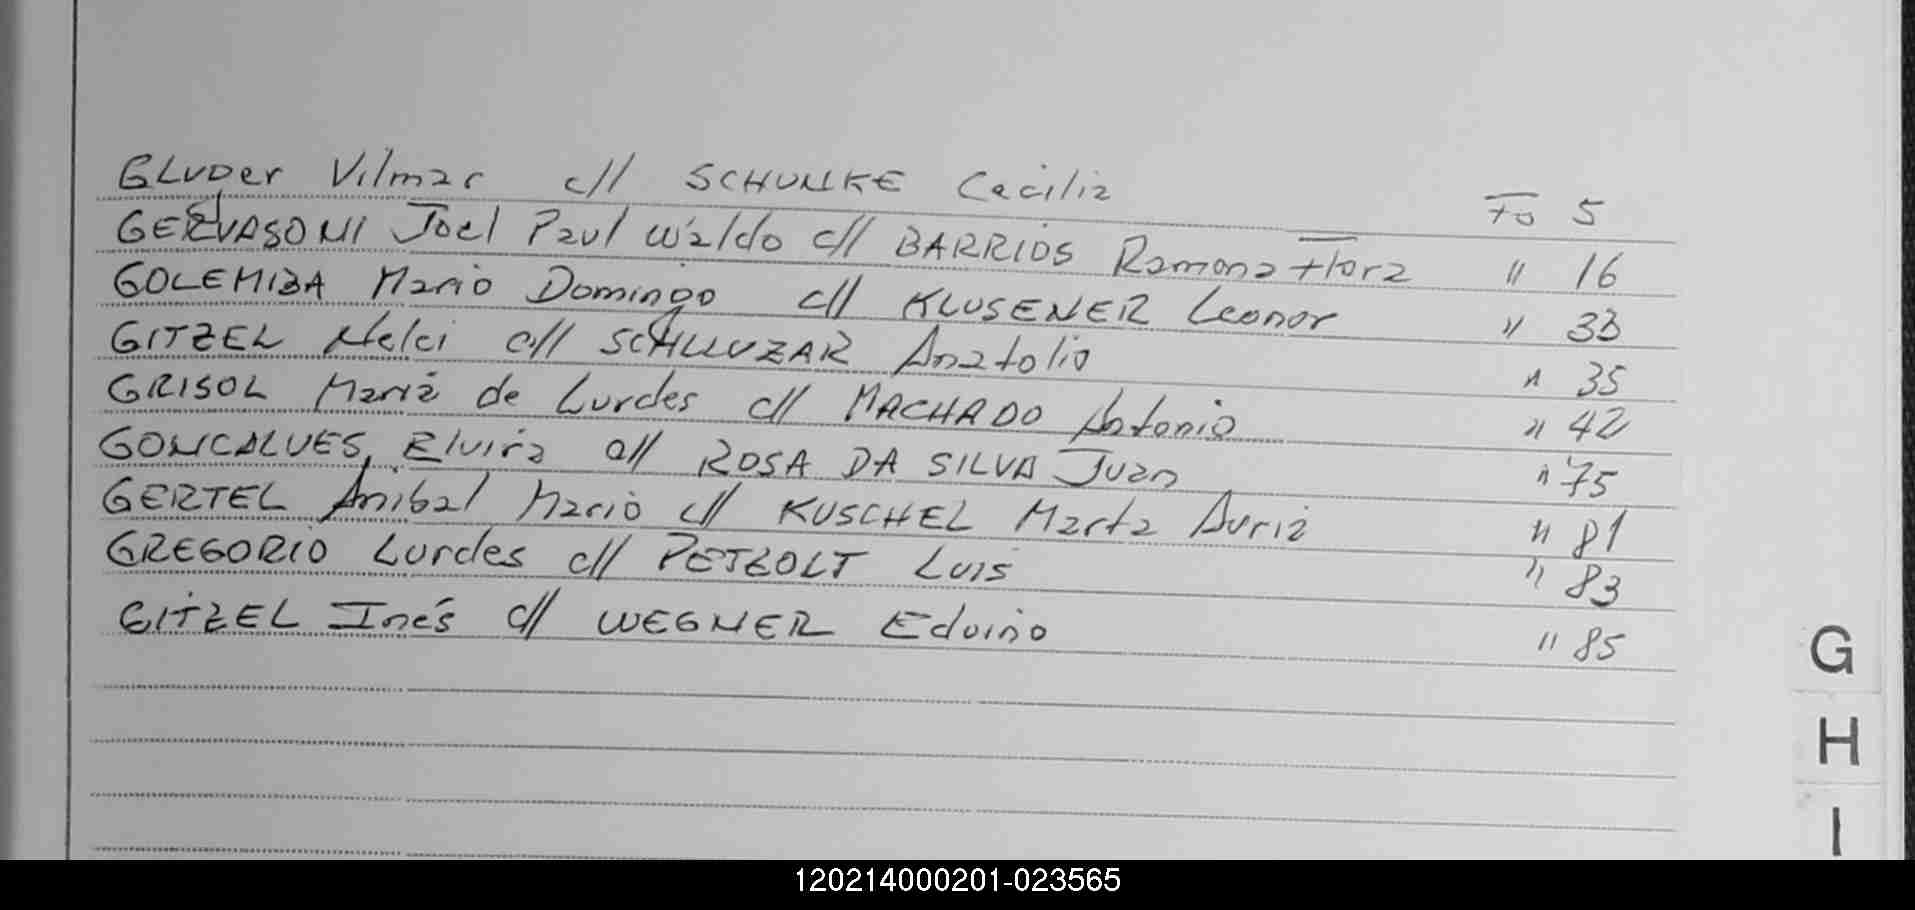 GLUDer Vilmar c// SCHUNKE Cecilia Fo 5
GERVASONI Joel Paul Waldo c// BARRIOS Ramona Flora " 16
GOLEMBA Mario Domingo c// KLUSENER Leonor " 33
GITZEL Nelci c// Anatolio " 35
GRISOL Maria de Lurdes c// MACHADO Antonio " 42
GONCALVES, Elvira c// ROSA DA SILVA Juan " 75
GERTEL Anibal Mario c// KUSCHEL Marta Auria " 81
GREGORIO Lurdes c// PETZOLT Luis " 83
GITZEL Inés c// WEGNER Edvino " 85
G
H
I
120214000201-023565